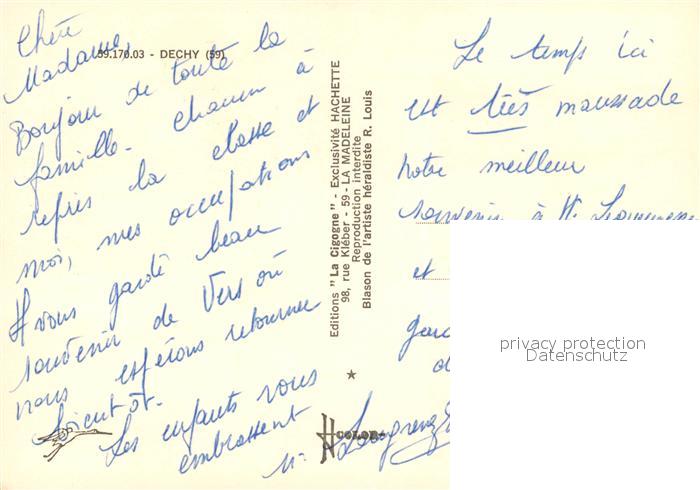 59.170.03 - DECHY (59)
Chère
Madame,
Bonjour de toute la
famille. Chacun à
repris la classe et
moi, mes occupations
vous garde beau
souvenir de Vers où
nous espérons retourner
bientôt.
Les enfants vous
embrassent
Editions "La Cigogne" - Exclusivité HACHETTE
98, rue Kléber - 59 - LA MADELEINE
Reproduction interdite
Blason de l'artiste héraldiste R. Louis
COLOR
Le temps ici
est très maussade
notre meilleur
souvenir à
et
privacy protection
Datenschutz